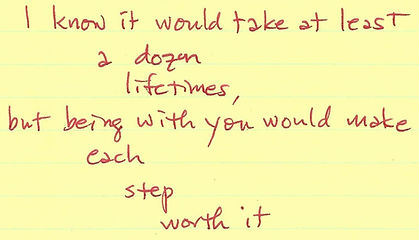 I know it would take at least
a dozen
lifetimes,
but being with you would make
each
step
worth it